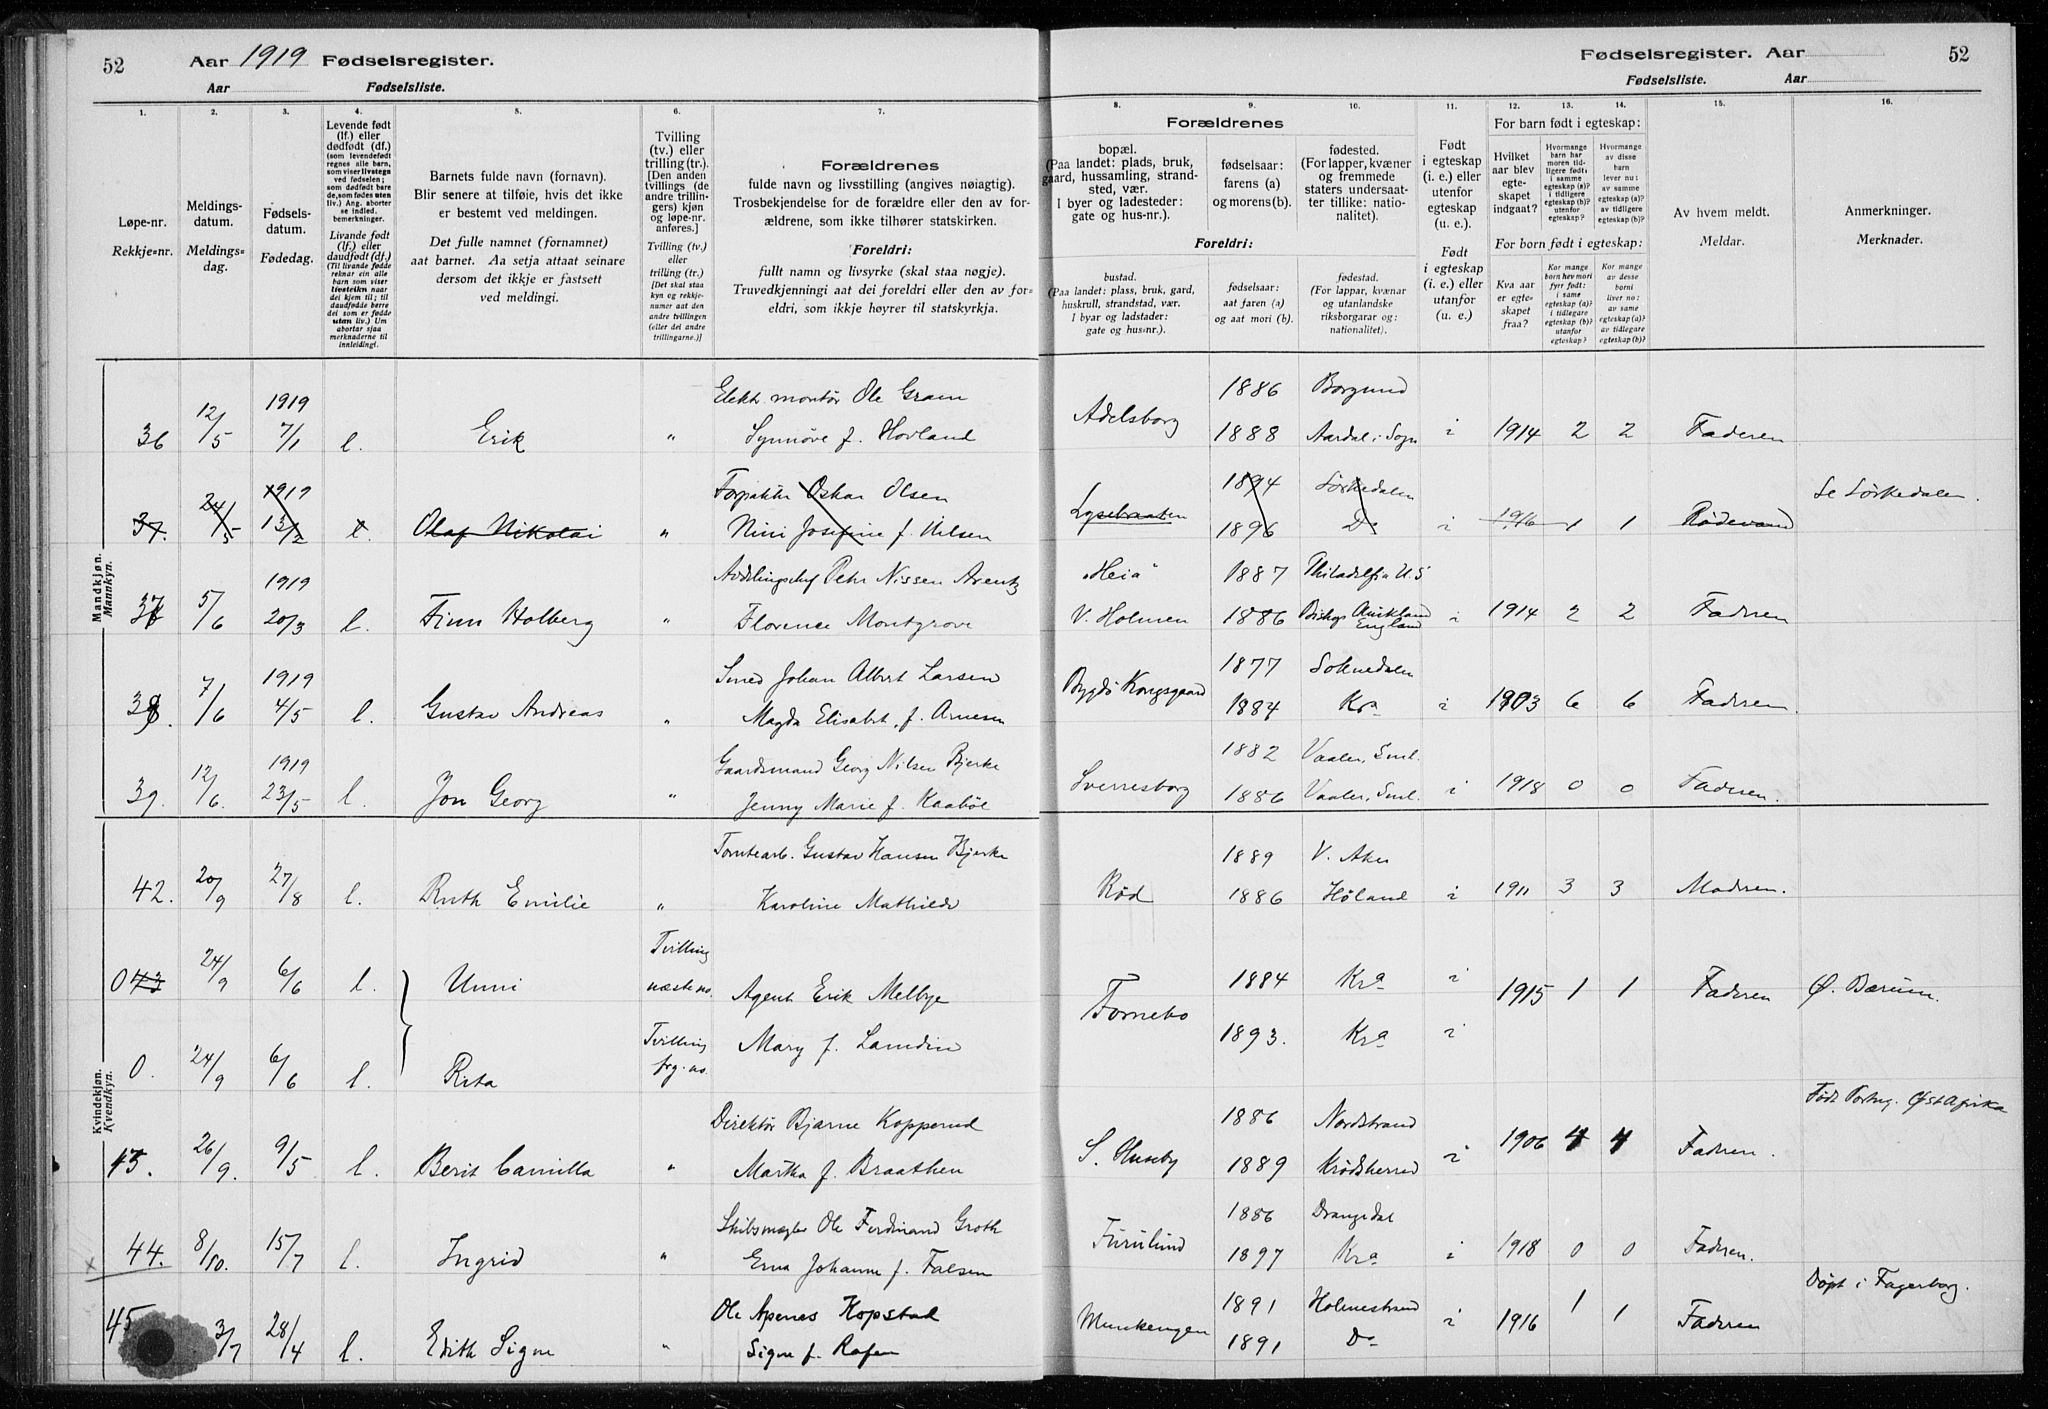 52 Aar 1919 Fødselsregister.
Aar Fødselsliste.
Fødselsregister. Aar 52
Fødselsliste. Aar
1. 2. 3. 4. 5. 6. 7. 8. 9. 10. 11. 12. 13. 14. 15. 16.
Løpe-nr.
Rekkje-nr.
Meldings-
datum.
Meldings-
dag.
Fødsels-
datum.
Fødedag.
Levende født
(lf.) eller
dødfødt (df.)
(som levendefødt
regnes alle barn,
som viser livstegn
ved fødselen;
som dødfødt bare
de, som fødes uten
liv.) Ang. aborter
se indled.
bemerkninger.
Livande født
(lf.) eller
daudfødt (df.)
(Til livande fødde
reknar ein alle
barn som viser
livsteikn naar
dei kjem til; til
daudfødde berre
dei som er fødde
utan liv.) Um
abortar sjaa
merknaderne til
innleidingi.
Barnets fulde navn (fornavn).
Blir senere at tilføie, hvis det ikke
er bestemt ved meldingen.
Det fulle namnet (fornamnet)
aat barnet. Aa setja attaat seinare
dersom det ikkje er fastsett
ved meldingi.
Tvilling
(tv.) eller
trilling (tr.).
[Den anden
tvillings (de
andre trillin-
gers) kjøn
og løpe-nr.
anføres.]
Tvilling (tv.)
eller
trilling (tr.)
[Det skal staa
kyn og rekkje-
numer aat den
andre tvillingen
(eller dei andre
trillingarne.)]
Forældrenes
fulde navn og livsstilling (angives nøiagtig).
Trosbekjendelse for de forældre eller den av for-
ældrene, som ikke tilhører statskirken.
Foreldri:
fullt namn og livsyrke (skal staa nøgje).
Truvedkjenningi aat dei foreldri eller den av for-
eldri, som ikkje høyrer til statskyrkja.
Forældrenes
bopæl.
(Paa landet: plads, bruk,
gaard, hussamling, strand-
sted, vær.
I byer og ladesteder:
gate og hus-nr.).
fødselsaar:
farens (a)
og morens (b).
fødested.
(For lapper, kvæner
og fremmede
staters undersaat-
ter tillike: natio-
nalitet).
Foreldri:
bustad.
(Paa landet: plass, bruk, gard,
huskrull, strandstad, vær.
I byar og ladstader:
gate og hus-nr.).
fødselsaar:
aat faren (a)
og aat mori (b).
fødestad.
(For lappar, kvænar
og utanlandske
riksborgarar og:
nationalitet).
Født
i egteskap
(i. e.) eller
utenfor
egteskap
(u. e.).
Født
i egteskap
(i. e.) eller
utanfor
(u. e.)
For barn født i egteskap:
Hvilket
aar blev
egte-
skapet
indgaat?
Hvormange
barn har
moren tid-
ligere født:
i samme
egteskap (a)?
i tidligere
egteskap (b)?
utenfor
egteskap?
Hvormange
av disse
barn
lever nu:
av samme
egteskap (a)?
av tidligere
egteskap (b)?
For born født i egteskap:
Kva aar
er egte-
skapet
fraa?
Kor mange
born hev mori
fyrr født:
i same
egteskap (a)?
i tidlegare
egteskap (b)?
utanfor
egteskap?
Kor mange
av desse
borni
liver no:
av same
egteskap (a)?
av tidlegare
egteskap (b)?
Av hvem meldt.
Meldar.
Anmerkninger.
Merknader.
Mandkjøn.
Mannkyn.
36 12/5 1919 7/1 l. Erik " Elektr. montør Ole Gram
Synnøve f. Hovland
Adelsborg 1886 Borgund
1888 Aardal i Sogn i 1914 2 2 Faderen
37. 24/5 1919 13/2 l. Olaf Nikolai " Forpakter Oskar Olsen
Nini Josefine f. Nilsen
Lysebraaten 1894 Sørkedalen
1896 Do i 1916 1 1 Se Sørkedalen.
37 5/6 1919 20/3 l. Finn Holberg " Avdelingschef Petr Nissen Arentz
Florence Montgrove
"Heia"
V. Holmen 1887 Philadelfia U.S
1886 Bishop Auckland England i 1914 2 2 Faderen
38. 7/6 1919 4/5 l. Gustav Andreas " Smed Johan Albert Larsen
Magda Elisabet, f. Arnesen
Bygdø Kongsgaard 1877 Soknedalen
1884 Kra i 1903 6 6 Faderen.
39. 12/6. 1919 23/5 l. Jon Georg " Gaardsmand Georg Nilsen Bjerke
Jenny Marie f. Kaabøl
Sverresborg 1882 Vaaler, Sml.
1886 Vaaler, Sml. i 1918 0 0 Faderen.
Kvindekjøn.
Kvendkyn.
42. 20/9 27/8 l. Ruth Emilie " Tomtearb. Gustav Hansen Bjerke
Karoline Mathilde
Rød 1889 V. Aker
1886 Høland i 1911 3 3 Moderen.
0 43 24/9 6/6 l. Unni Tvilling
næste no. Agent Erik Melbye
Fornebo 1884 Kra i 1915 1 1 Faderen Ø. Bærum.
0. 24/9 6/6 l. Rita Tvilling
frg. no. Mary f. Lamdin
1893. Kra i
43. 26/9. 9/5 l. Berit Camilla " Direktør Bjarne Kopperud
Martha f. Braathen
S. Huseby 1886 Nordstrand
1889 Krødsherred i 1906 4 4 Faderen. Født Portug. Øst Afrika
x 44. 8/10. 15/7 l. Ingrid " Skibsmægler Ole Ferdinand Groth
Erna Johanne f. Falsen
Furulund 1886 Drangedal
1897 Kra i 1918 0 0 Faderen.
45 3/7 28/4 l. Edith Signe " Ole Apenes Kopstad
Signe f. Rafen
Munkengen 1891 Holmestrand
1891 Do i 1916 1 1 Faderen Døpt i Fagerborg.